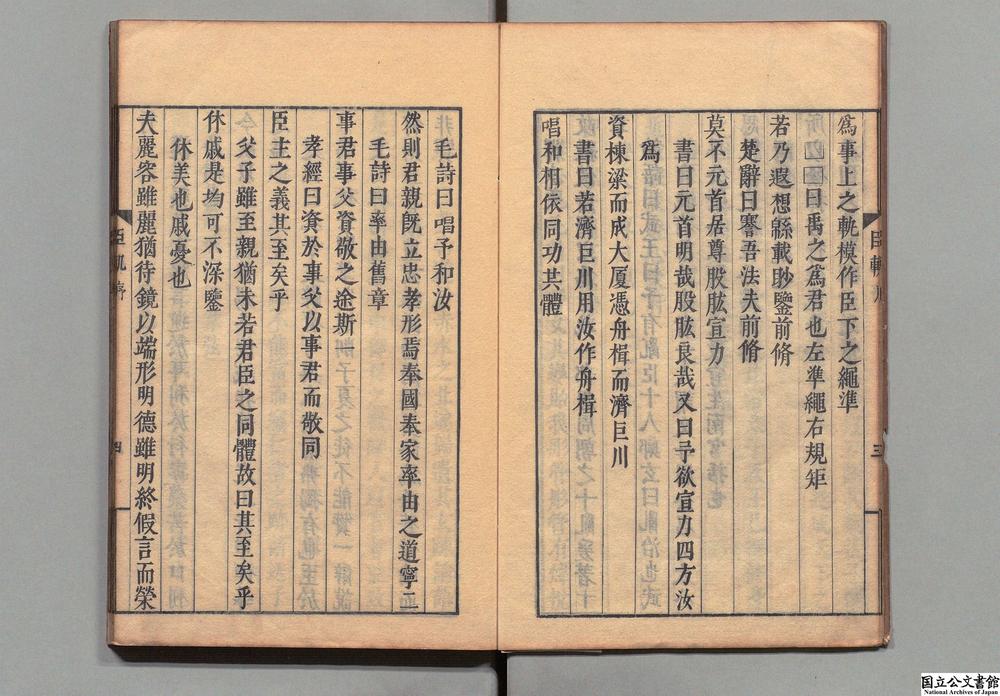 爲事上之軌模作臣下之繩準
曰禹之爲君也左準繩右規矩
若乃遐想緜載眇鑒前脩
楚辭曰謇吾法夫前脩
莫不元首居尊股肱宣力
書曰元首明哉股肱良哉又曰予欲宣力四方汝
爲
資棟梁而成大厦憑舟楫而濟巨川
書曰若濟巨川用汝作舟楫
唱和相依同功共體
毛詩曰唱予和汝
然則君親旣立忠孝形焉奉國奉家率由之道寧二
毛詩曰率由舊章
事君事父資敬之途斯一
孝經曰資於事父以事君而敬同
臣主之義其至矣乎
父子雖至親猶未若君臣之同體故曰其至矣乎
休戚是均可不深鑒
休美也戚憂也
夫麗容雖麗猶待鏡以端形明德雖明終假言而榮
臣軌序
三
四
国立公文書館
National Archives of Japan